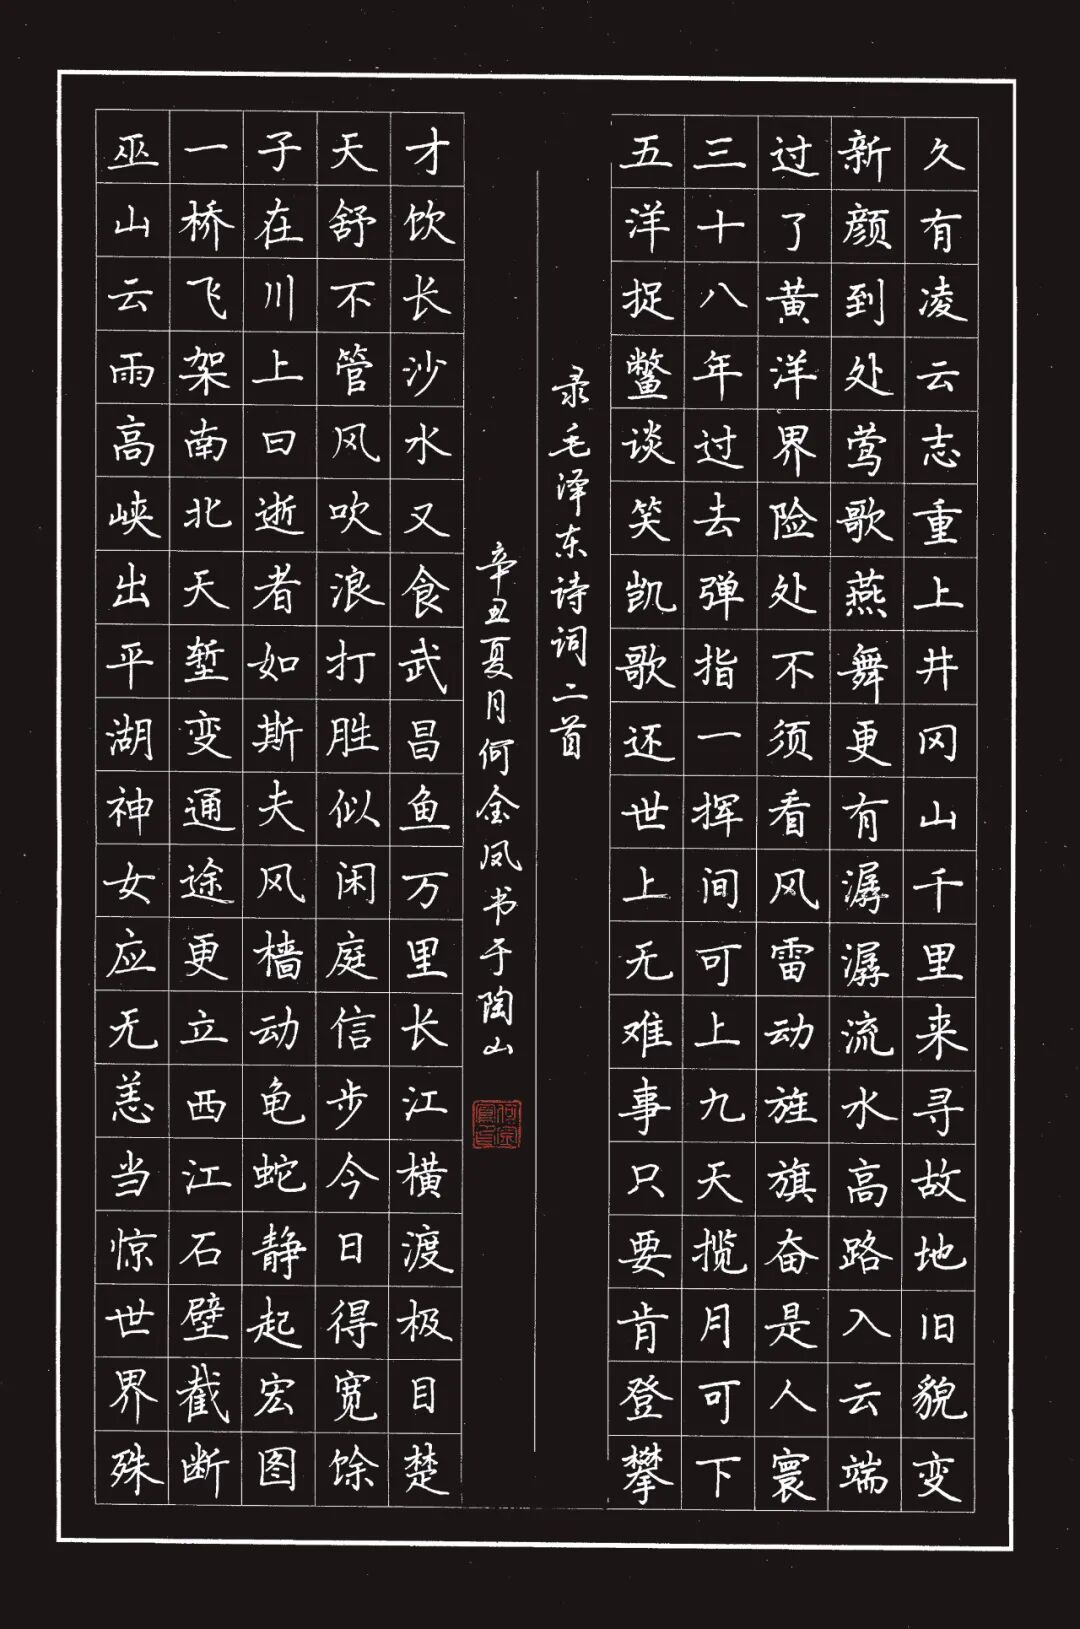 久有凌云志重上井冈山千里来寻故地旧貌变
新颜到处莺歌燕舞更有潺潺流水高路入云端
过了黄洋界险处不须看风雷动旌旗奋是人寰
三十八年过去弹指一挥间可上九天揽月可下
五洋捉鳖谈笑凯歌还世上无难事只要肯登攀
录毛泽东诗词二首
辛丑夏月何金凤书于陶山
才饮长沙水又食武昌鱼万里长江横渡极目楚
天舒不管风吹浪打胜似闲庭信步今日得宽馀
子在川上曰逝者如斯夫风樯动龟蛇静起宏图
一桥飞架南北天堑变通途更立西江石壁截断
巫山云雨高峡出平湖神女应无恙当惊世界殊